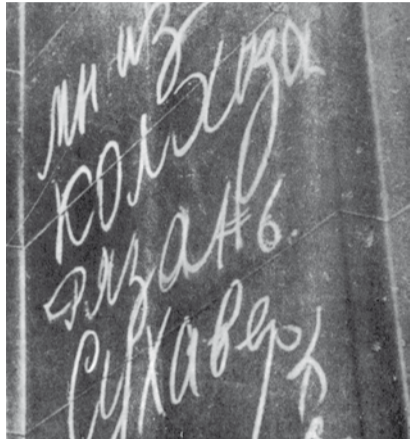 мы из
колхоза
Рязань.
Сухаверх